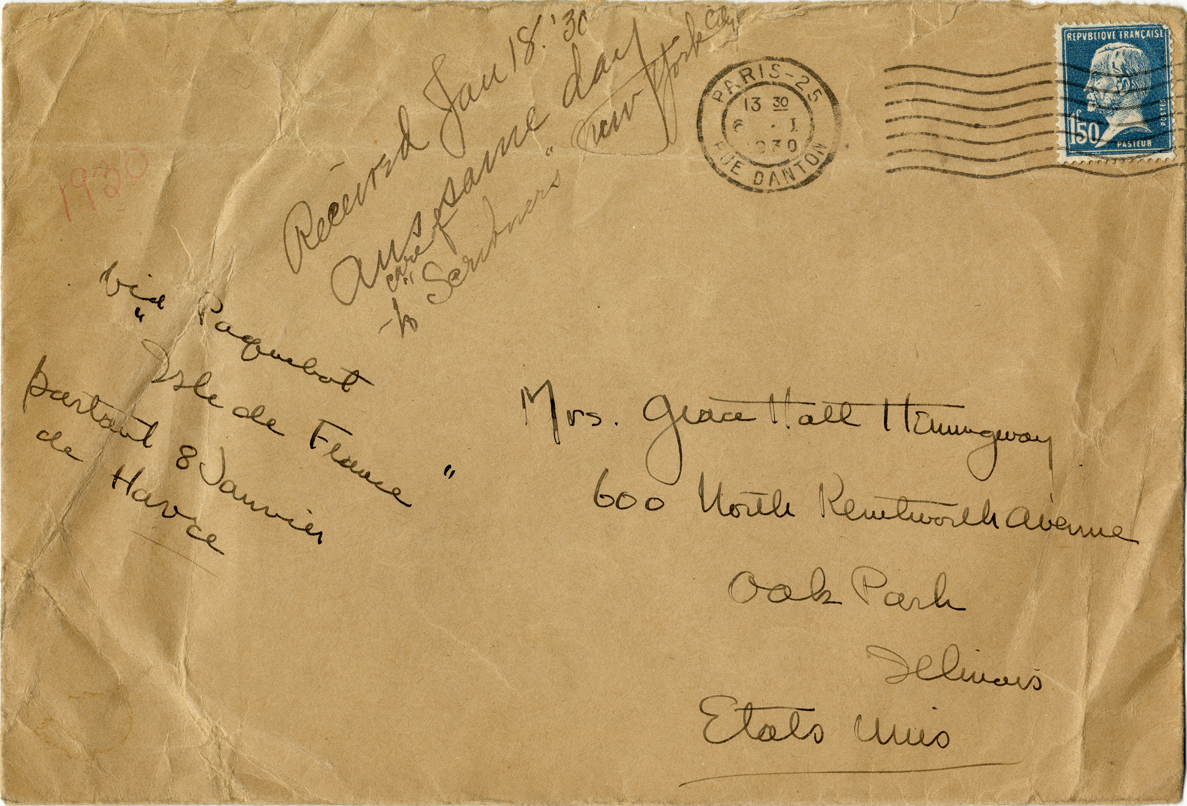 Received Jan 18. '30
ans same day
care
to "Scribners" New York City
1930
PARIS-25
13 30
6 . I
930
RUE DANTON
REPVBLIQUE FRANÇAISE
1F50
POSTES
PASTEUR
via Paquebot
"Isle de France"
partant 8 Janvier
de Havre
Mrs. Grace Hall Hemingway
600 North Kenilworth Avenue
Oak Park
Illinois
Etats Unis